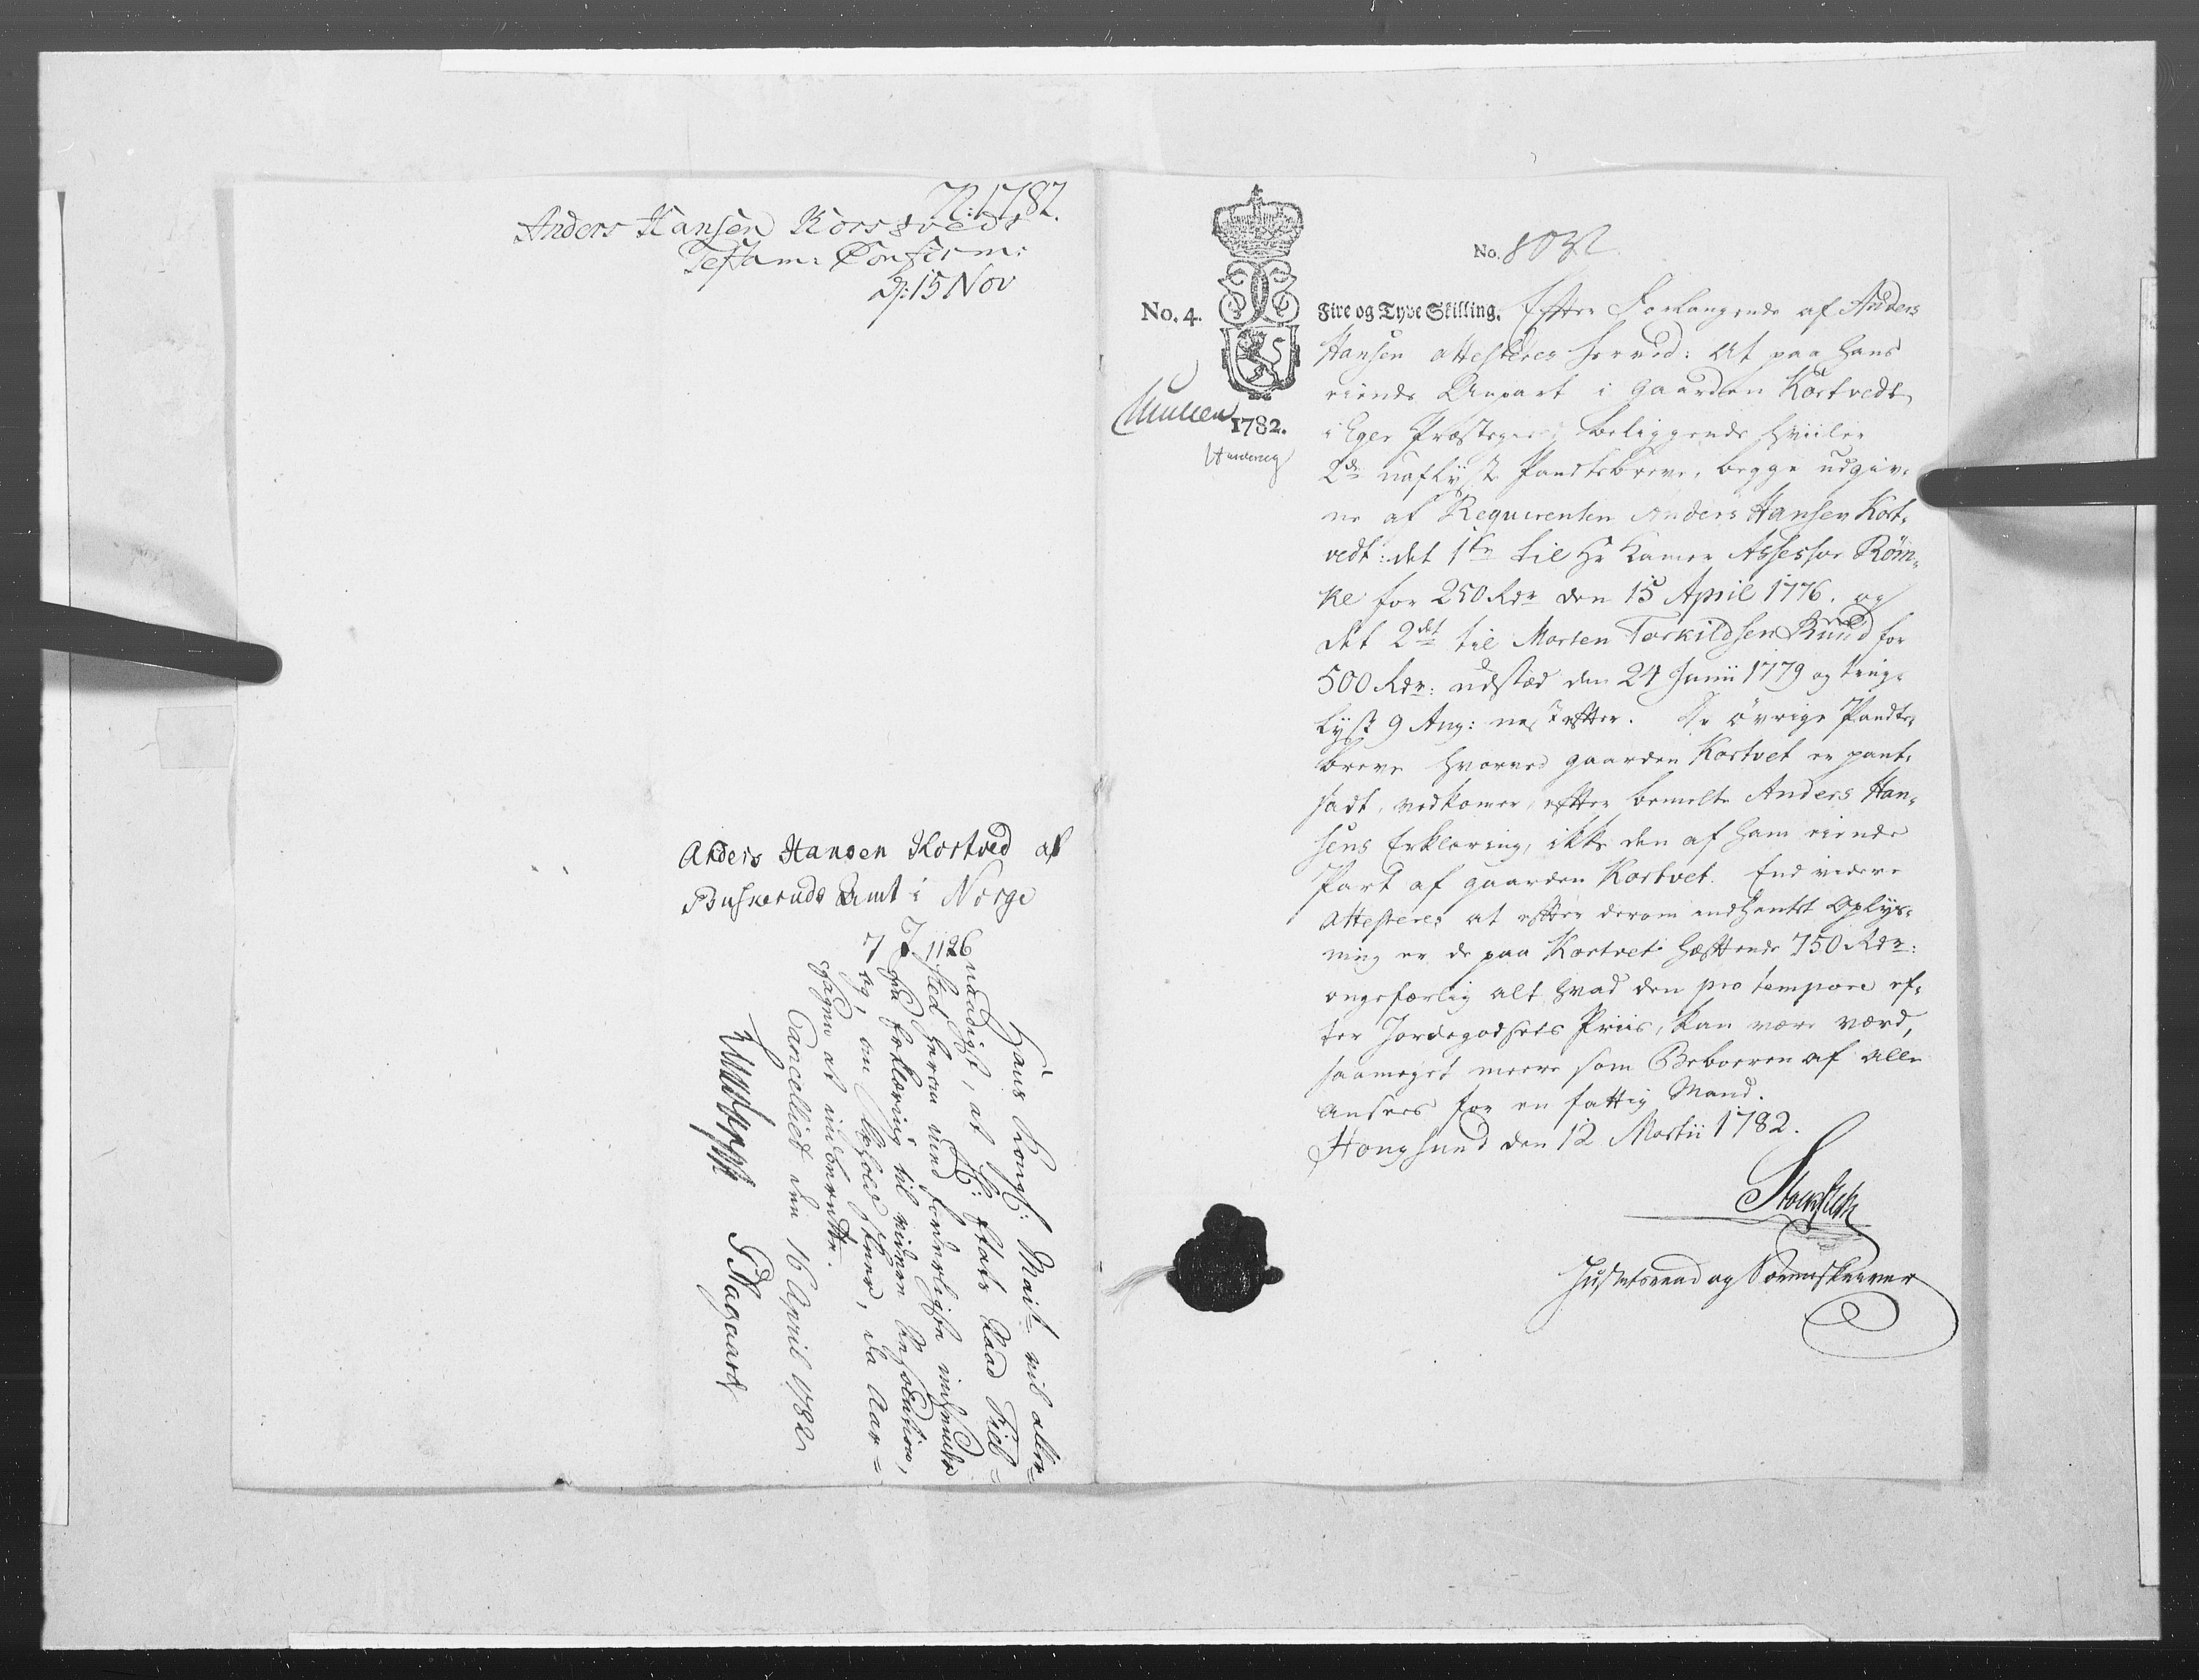 N: 1782.
Anders Hansen Korssvedt
Testam: Confirm:
d: 15 Nov
Anders Hansen Kortved af
Buskeruds Amt i Norge
7 J. 1126
Hans Kongl: Mait: vil aller=
naadigst, at H: Etats Raad Fiel=
sted herom med forderligste indhenter
Erklæring til videre Expedition,
og, om beholdes fleer, da Aar=
sagen at indberette.
Cancelliet den 16 April 1782
P Aagaard
No. 4.
1782.
No. 8032
Fire og Tyve Skilling. Efter Forlangende af Anders
Hansen attesteres herved: At paa hans
eiende Anpart i Gaarden Kortvedt
i Eger Præstegield beliggende hviiler
2de uaflyste Pandtebreve, begge udgiv-
ne af Requirenten Anders Hansen Kort-
vedt: det 1te til Hr Kamer Assessor Röm-
ke for 250 Rdr den 15 April 1776. og
det 2det til Morten Torkildsen Ruud for
500 Rdr: udstæd den 24 Junii 1779 og ting-
lyst 9 Aug: nest efter. De övrige Pandte-
breve hvorved gaarden Kortvet er pant-
sadt, vedkomer, efter bemelte Anders Han-
sens Erklæring, ikke den af ham eiende
Part af gaarden Kortvet. End videre
Attesteres at efter derom indhentet Oplys-
ning er de paa Kortvet hæftende 750 Rdr:
ongefærlig alt hvad den pro tempore ef-
ter Jordegodsets Priis, kan være værd,
saameget meere som Beboeren af alle
ansees for en fattig Mand.
Hougsund den 12 Martii 1782.
Stockfleth
Justitsraad og Sorenskriver